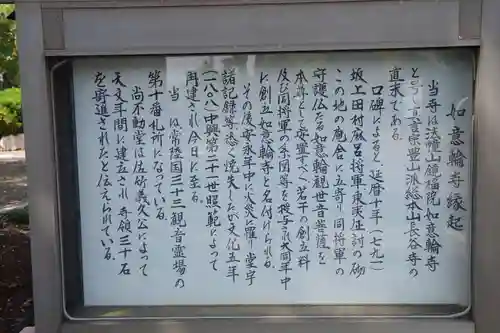 如意輪寺縁起
当寺は法幢山鐘福院如意輪寺
と号し真言宗豊山派総本山長谷寺の
直末である。
口碑によると、延暦十年(七九一)
坂上田村麻呂将軍東夷征討の砌
この地の鹿合に立寄り同将軍の
守護仏たる如意輪観世音菩薩を
本尊として安置すべく若干の創立料
及び同将軍の系図等を授与され大同年中
に創立如意輪寺と名付けられる。
その後安永年中に火災に罹り堂宇
諸記録等悉く焼失したが文化五年
(一八〇八)中興第二十二世照範によって
再建され今日に至る。
当寺は常陸国三十三観音霊場の
第十番札所になっている。
尚不動堂は佐竹義久公によって
天文年間に建立され寺領三十石
を寄進されたと伝えられている。